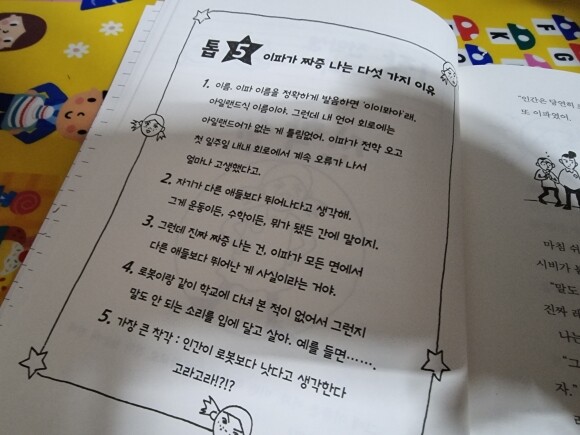 톱 5 이파가 짜증 나는 다섯 가지 이유
1. 이름. 이파 이름을 정확하게 발음하면 '이이퐈아'래.
아일랜드식 이름이야. 그런데 내 언어 회로에는
아일랜드어가 없는 게 틀림없어. 이파가 전학 오고
첫 일주일 내내 회로에서 계속 오류가 나서
얼마나 고생했다고.
2. 자기가 다른 애들보다 뛰어나다고 생각해.
그게 운동이든, 수학이든, 뭐가 됐든 간에 말이지.
3. 그런데 진짜 짜증 나는 건, 이파가 모든 면에서
다른 애들보다 뛰어난 게 사실이라는 거야.
4. 로봇이랑 같이 학교에 다녀 본 적이 없어서 그런지
말도 안 되는 소리를 입에 달고 살아. 예를 들면…….
5. 가장 큰 착각 : 인간이 로봇보다 낫다고 생각한다
고라고라!?!?
"인간은 당연히
또 이파였어.
마침 쉬
시비가 붙
"말도
진짜 로
나는
"그
자.
F
G